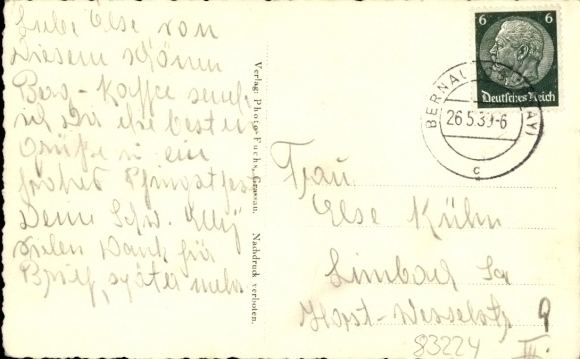 Liebe Else von
diesem schönen
Berg-Kaffee sende
ich Dir die besten
Grüße u ein
frohes Pfingstfest
Deine Schw. Elly
vielen Dank für
Brief, später mehr.
Verlag: Photo-Fuchs, Grassau. Nachdruck verboten.
6 6
Deutsches Reich
BERNAU AY)
26.5.39-6
c
Frau
Else Kühn
Limbach Sa
Horst-Wesselstr 9
III.
83224